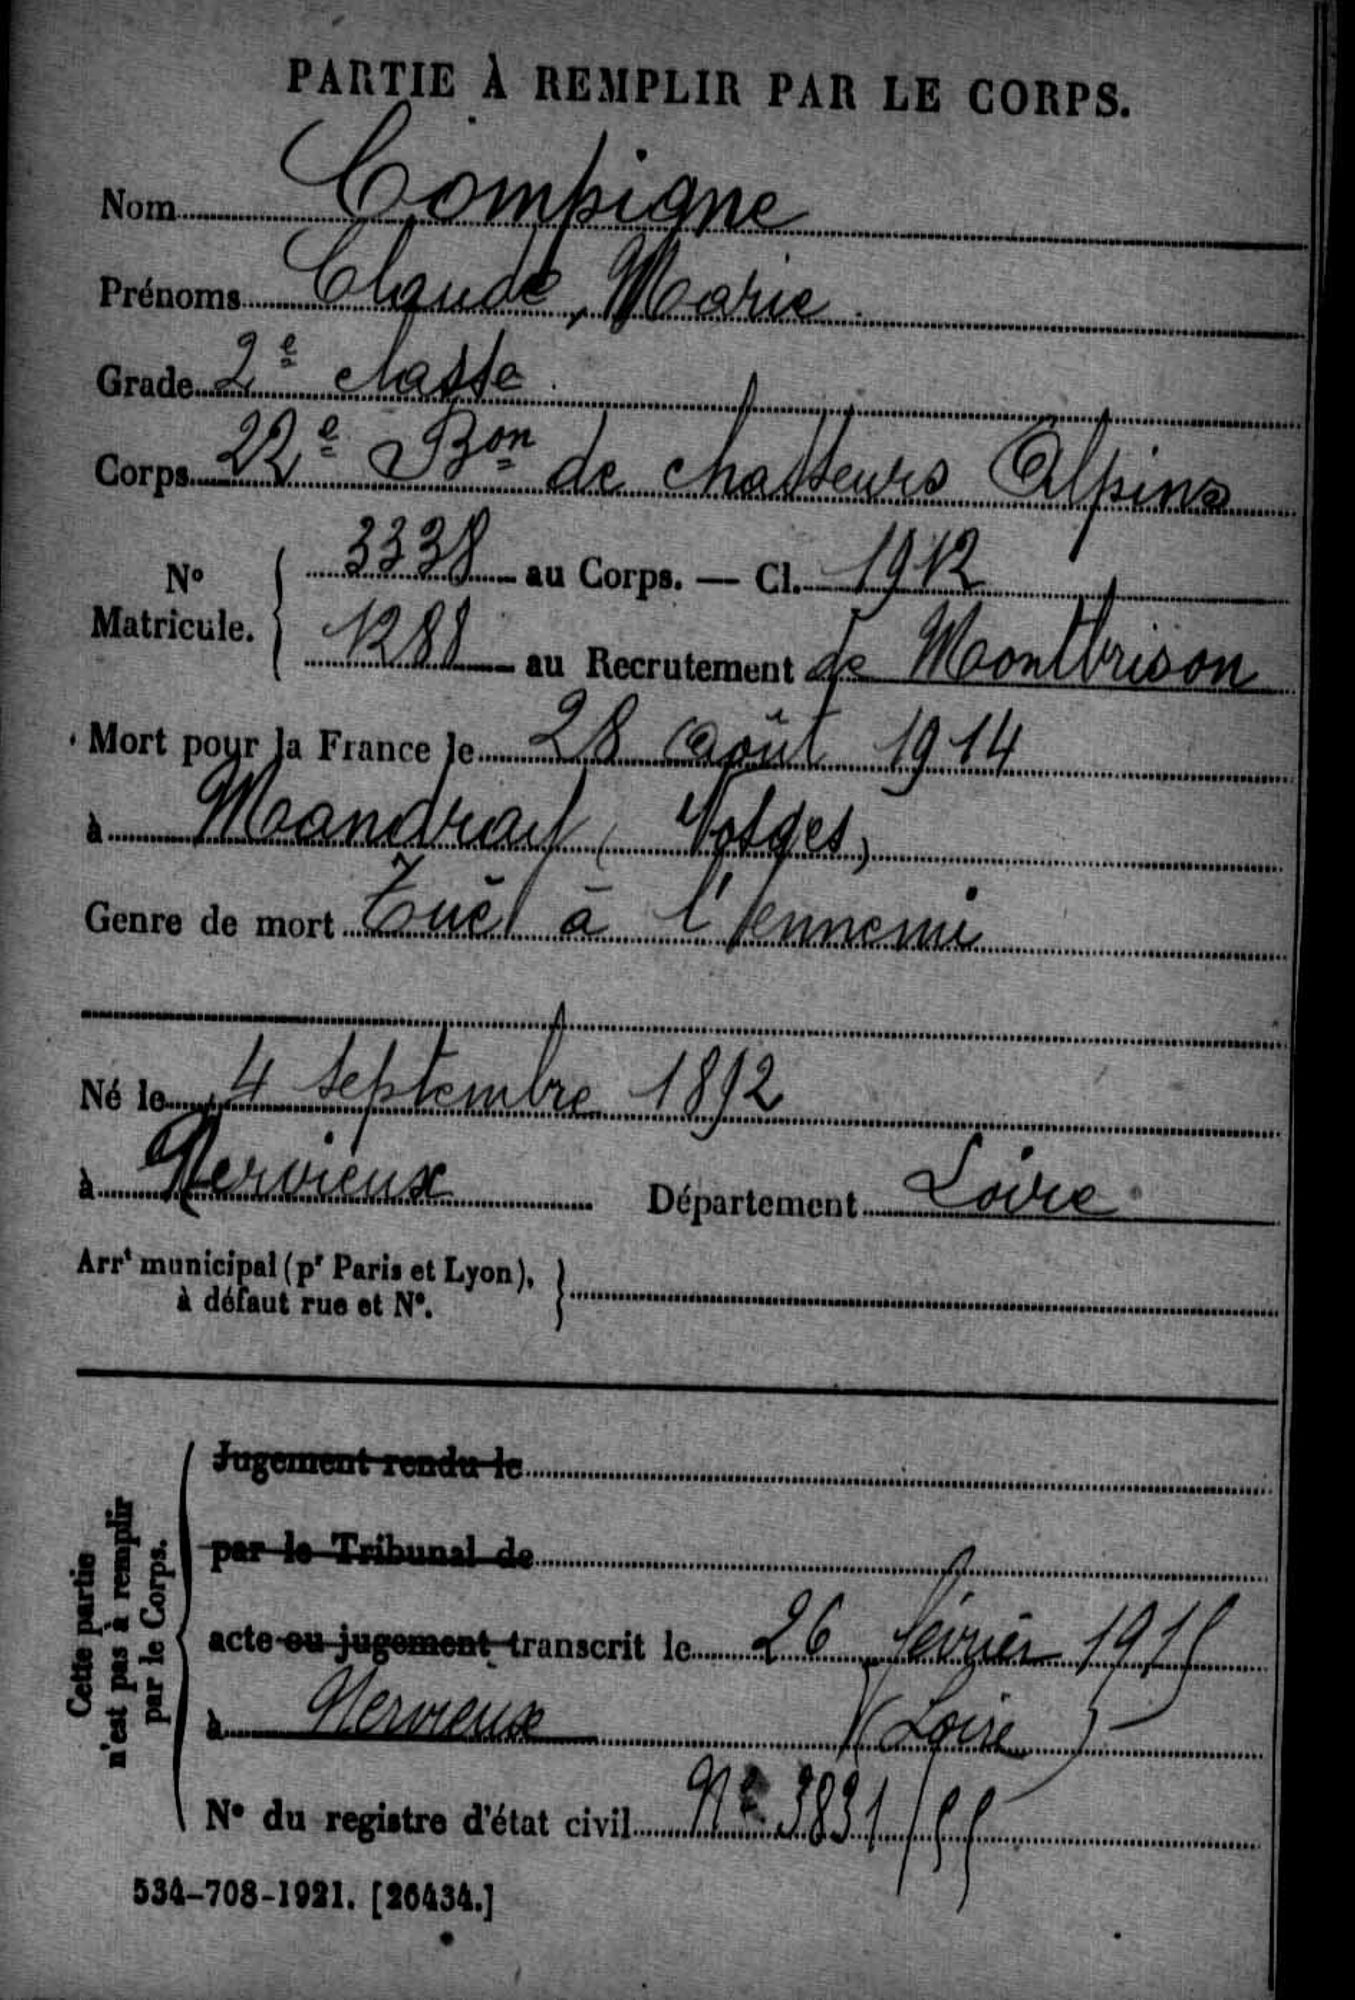 PARTIE À REMPLIR PAR LE CORPS.
Nom Compigne
Prénoms Claude, Marie
Grade 2e classe
Corps 22e Bon de chasseurs Alpins
No Matricule. { 3338 au Corps. — Cl. 1912
1288 au Recrutement de Montbrison
Mort pour la France le 28 Août 1914
à Mandray (Vosges)
Genre de mort Tué à l'ennemi
Né le 4 septembre 1892
à Nervieux Département Loire
Arrt municipal (pr Paris et Lyon),
à défaut rue et No.
Cette partie
n'est pas à remplir
par le Corps.
Jugement rendu le
par le Tribunal de
acte ou jugement transcrit le 26 février 1915
à Nervieux (Loire)
No du registre d'état civil No 3831/55
534-708-1921. [26434.]